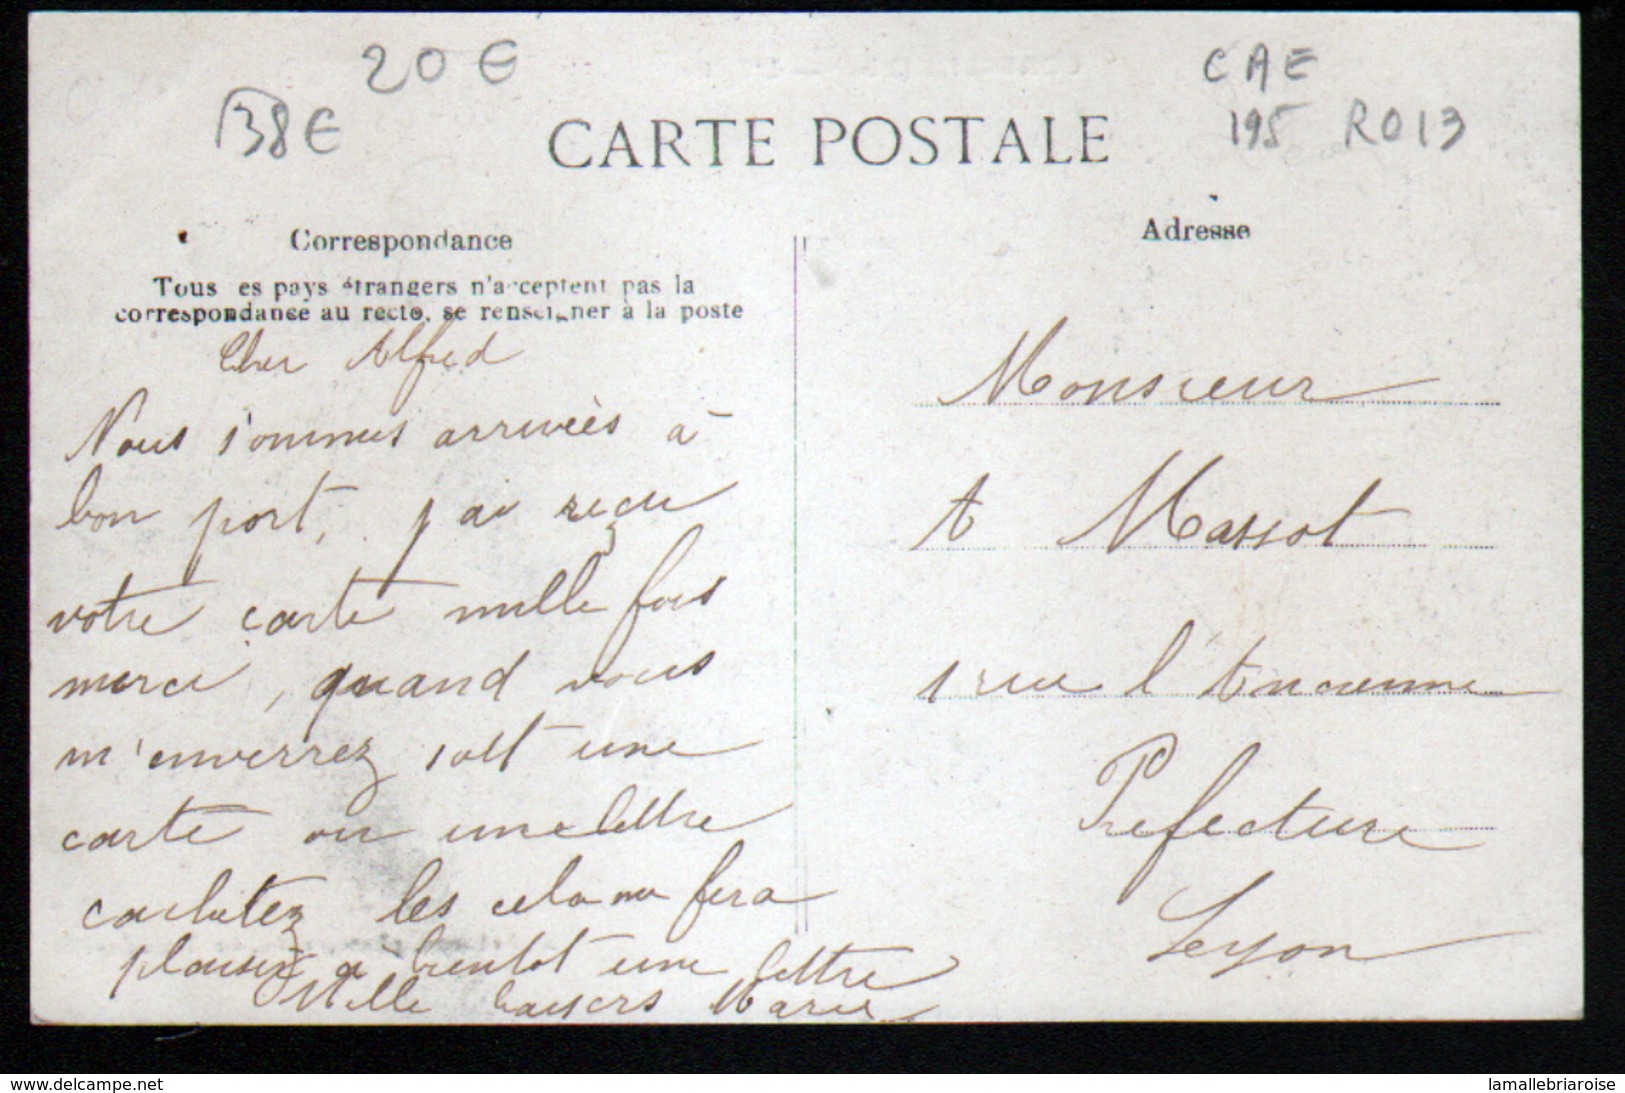 20 €
38 €
CAE
195 R013
CARTE POSTALE
Correspondance
Adresse
Tous es pays étrangers n'acceptent pas la
correspondance au recto, se renseigner à la poste
Cher Alfred
Nous sommes arrivées à
bon port, j'ai reçu
votre carte mille fois
merci, quand vous
m'enverrez soit une
carte ou une lettre
cachetez les cela me fera
plaisir à bientot une lettre
Mille baisers Marie
Monsieur
A Massot
1 rue l'Ancienne
Prefecture
Lyon
www.delcampe.net
lamallebriaroise